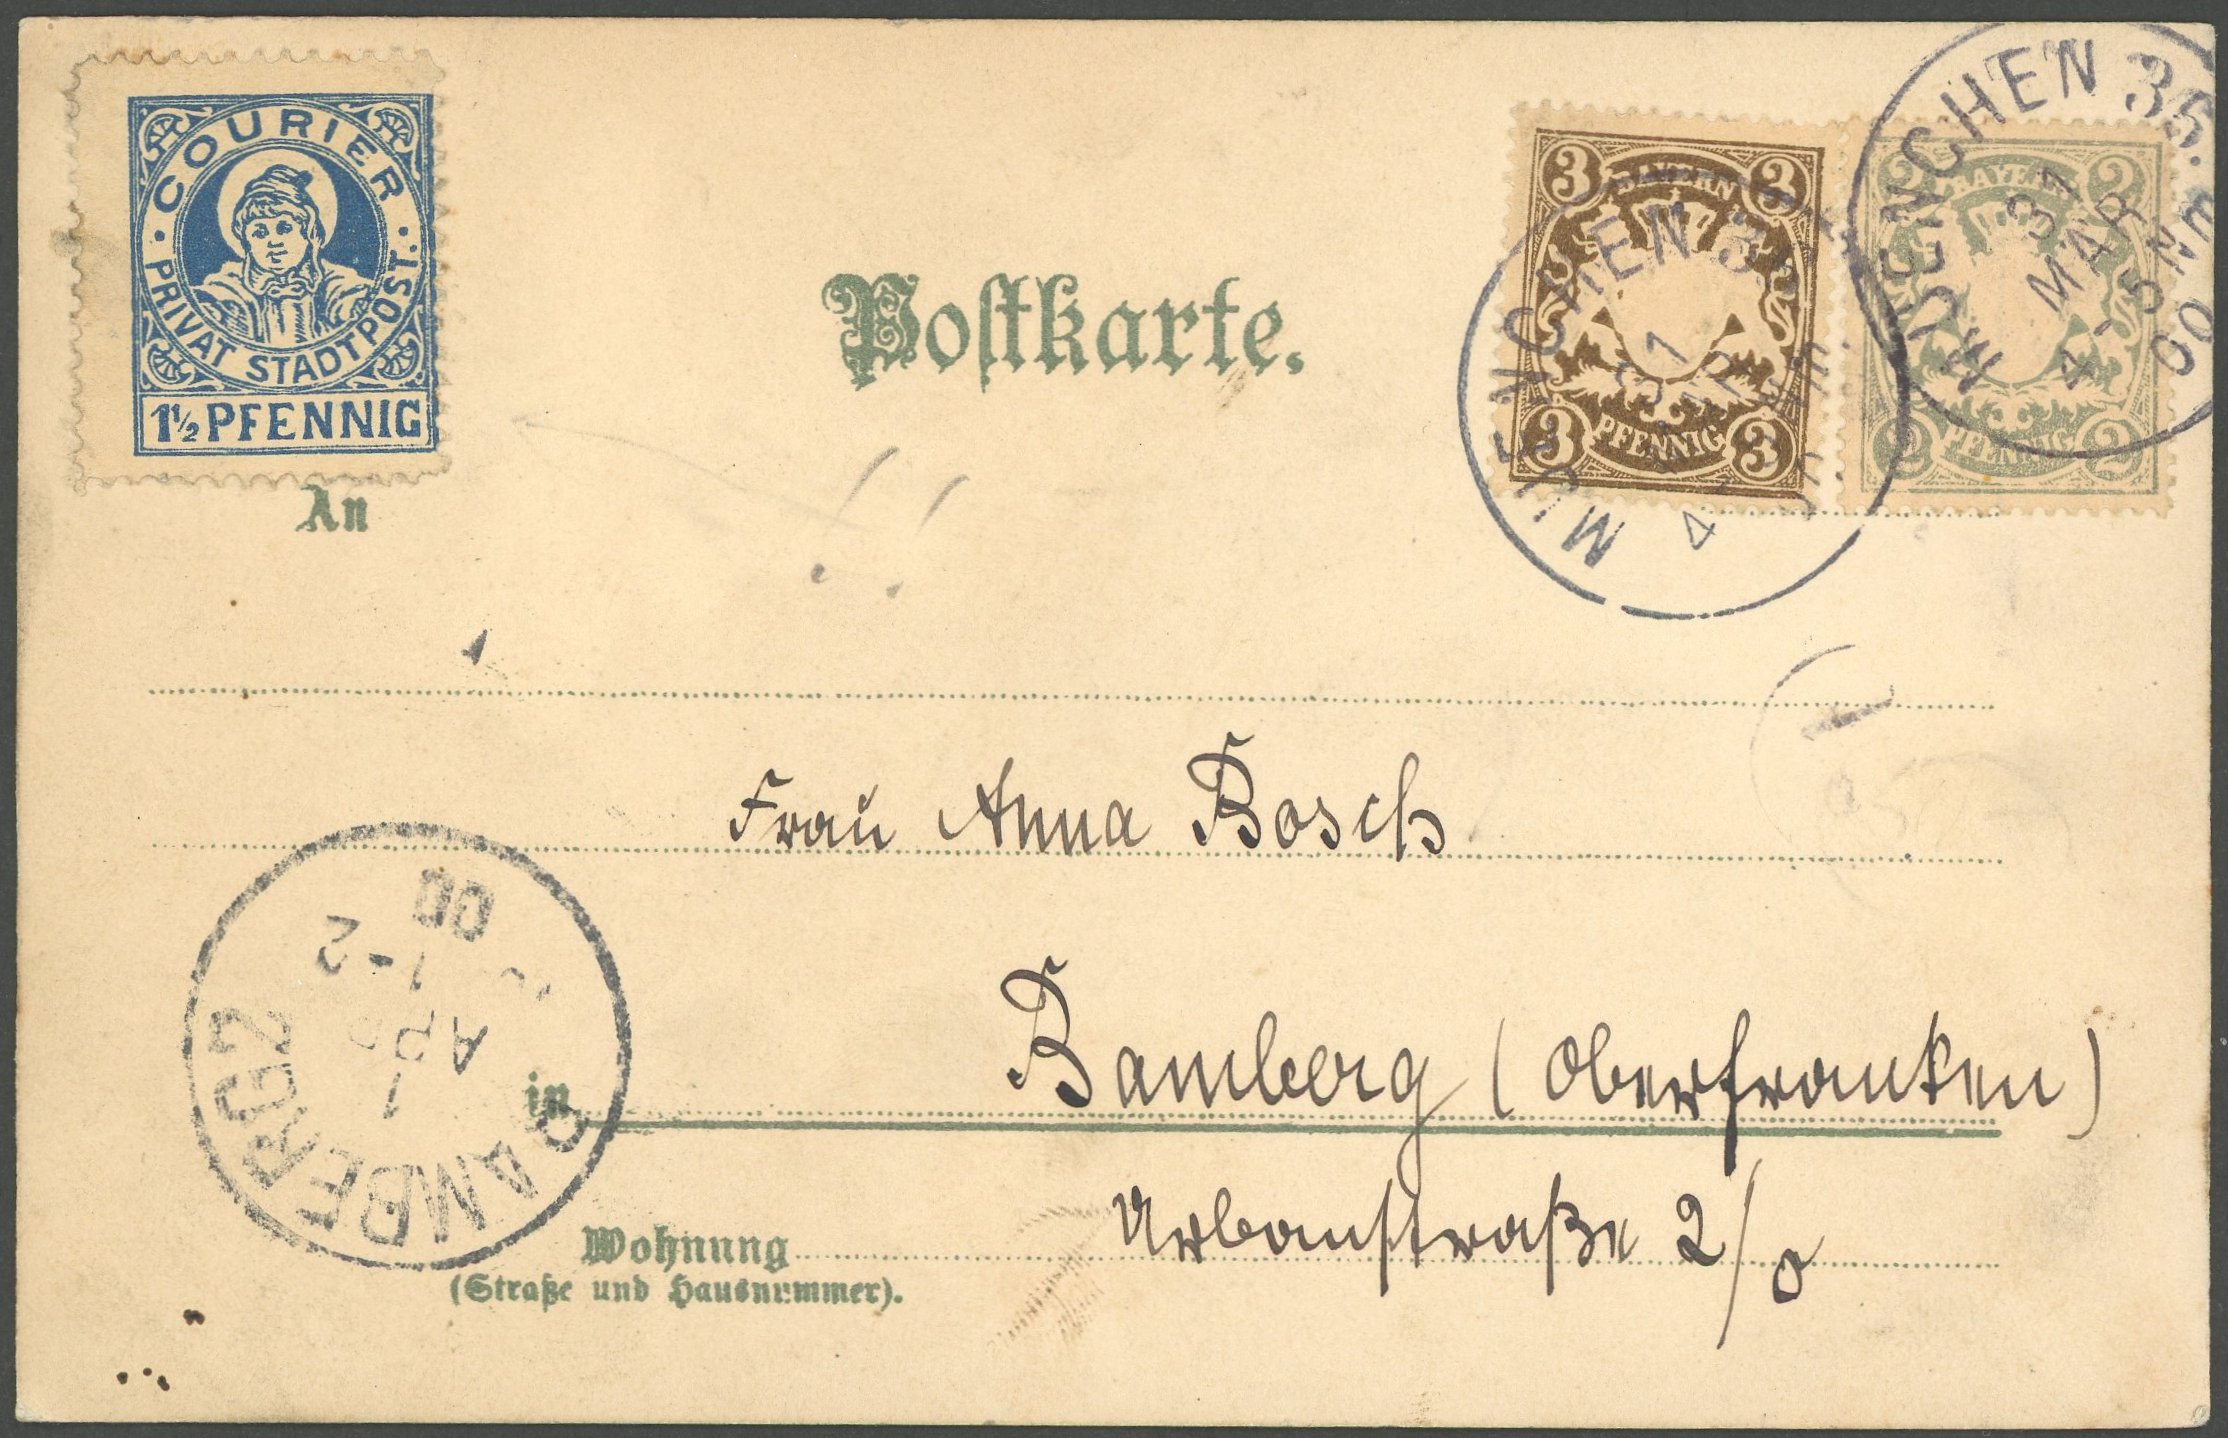 · COURIER ·
PRIVAT STADTPOST.
1½ PFENNIG
Postkarte.
3 BAYERN 3
3 PFENNIG 3
2 BAYERN 2
2 PFENNIG 2
MUENCHEN 35.
31
MAR
4-5 NM
00
MUENCHEN
An
Frau Anna Bosch
in Bamberg (Oberfranken)
Wohnung Urbanstraße 2/0
(Straße und Hausnummer).
BAMBERG 2
1
APR
1-2
00